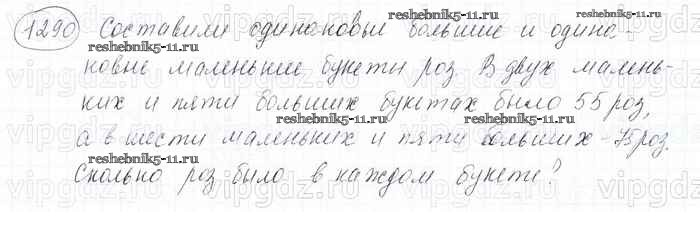 1290 Составили одинаковые большие и одина-
ковые маленькие букеты роз. В двух малень-
ких и пяти больших букетах было 55 роз,
а в шести маленьких и пяти больших - 75 роз.
Сколько роз было в каждом букете?
reshebnik5-11.ru
reshebnik5-11.ru
reshebnik5-11.ru
reshebnik5-11.ru
reshebnik5-11.ru
reshebnik5-11.ru
vipgdz.ru
vipgdz.ru
vipgdz.ru